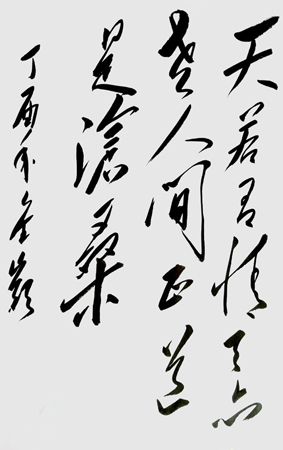 天若有情天亦
老人間正道
是滄桑
丁酉年